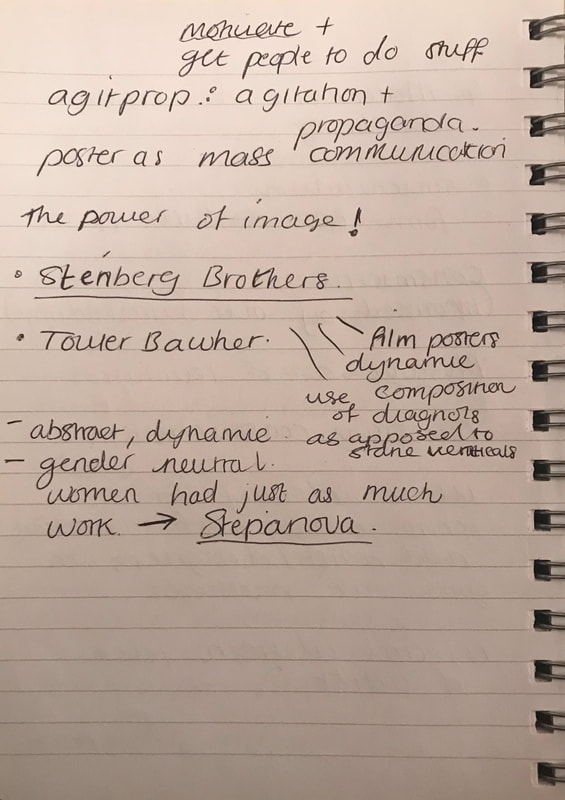 motivate +
get people to do stuff
agitprop : agitation +
propaganda.
poster as mass communication
the power of image!
• Stenberg Brothers.
• Tower Bawher.
film posters
dynamic
use composition
of diagnols
as apposed to
static verticals
- abstract, dynamic
- gender neutral.
women had just as much
work. → Stepanova.